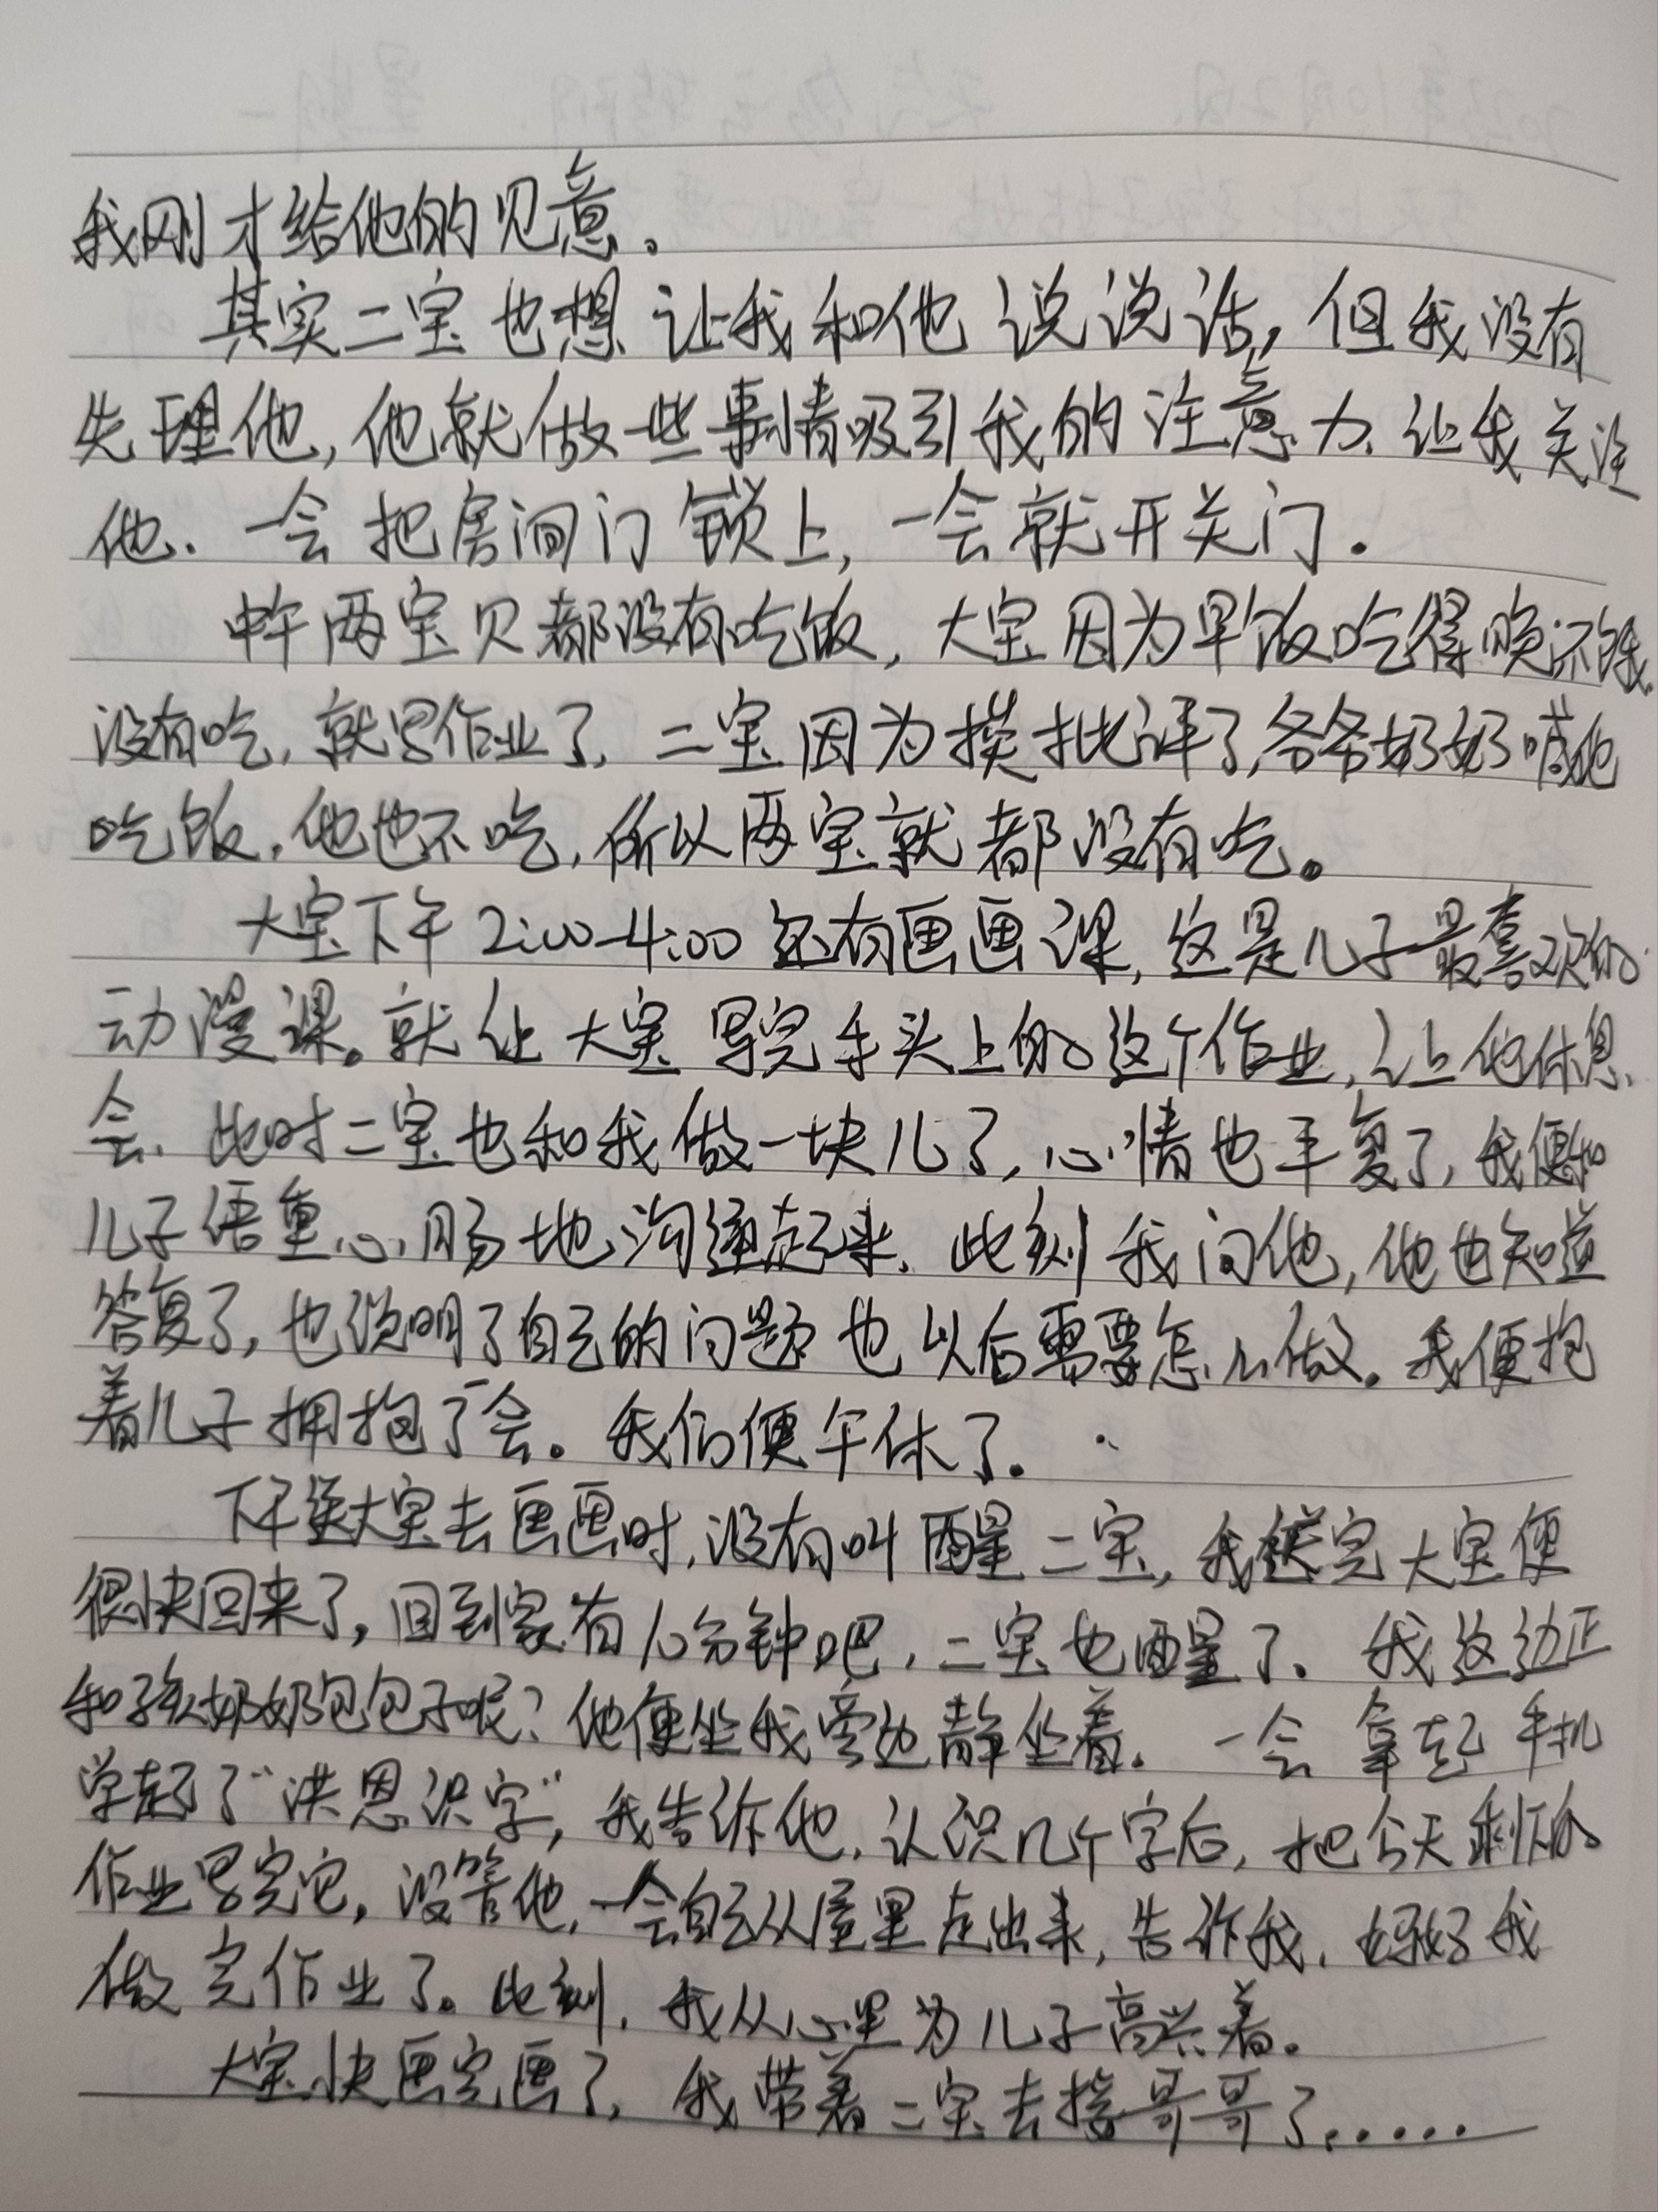 我刚才给他的见意。
其实二宝也想让我和他说说话，但我没有
先理他，他就做一些事情吸引我的注意力、让我关注
他、一会把房间门锁上，一会就开关门。
中午两宝贝都没有吃饭，大宝因为早饭吃得晚还不饿、
没有吃，就写作业了，二宝因为挨批评了，爷爷奶奶喊他
吃饭，他也不吃，所以两宝就都没有吃。
大宝下午2:00-4:00还有画画课，这是儿子最喜欢的
动漫课。就让大宝写完手头上的这个作业，让他休息
会、此时二宝也和我做一块儿了，心情也平复了，我便和
儿子语重心肠地沟通起来、此刻我问他，他也知道
答复了，也说明了自己的问题也以后需要怎么做。我便抱
着儿子拥抱了会。我们便午休了。
下午送大宝去画画时，没有叫醒二宝，我送完大宝便
很快回来了，回到家有10分钟吧，二宝也醒了、我这边正
和孩奶奶包包子呢？他便坐我旁边静坐着。一会拿起手机
学起了“洪恩识字”，我告诉他，认识几个字后，把今天剩下的
作业写完它，没管他，一会自己从屋里走出来，告诉我，妈妈我
做完作业了。此刻，我从心里为儿子高兴着。
大宝快画完画了，我带着二宝去接哥哥了......